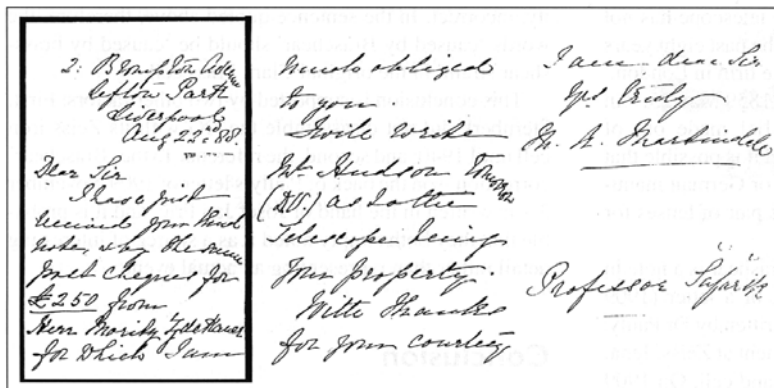 2. Brompton Avenue
Sefton Park
Liverpool
Aug 22nd 88.
Dear Sir
I have just
received your kind
note, with the
first cheque for
£250 from
Herr Moritz
for which I am
much obliged
to you
I will write
Mr. Hudson tomorrow
(D.V.) as to the
Telescope being
your property
With thanks
for your courtesy
I am dear Sir
yrs truly
M. A. Martindale
Professor Safarik